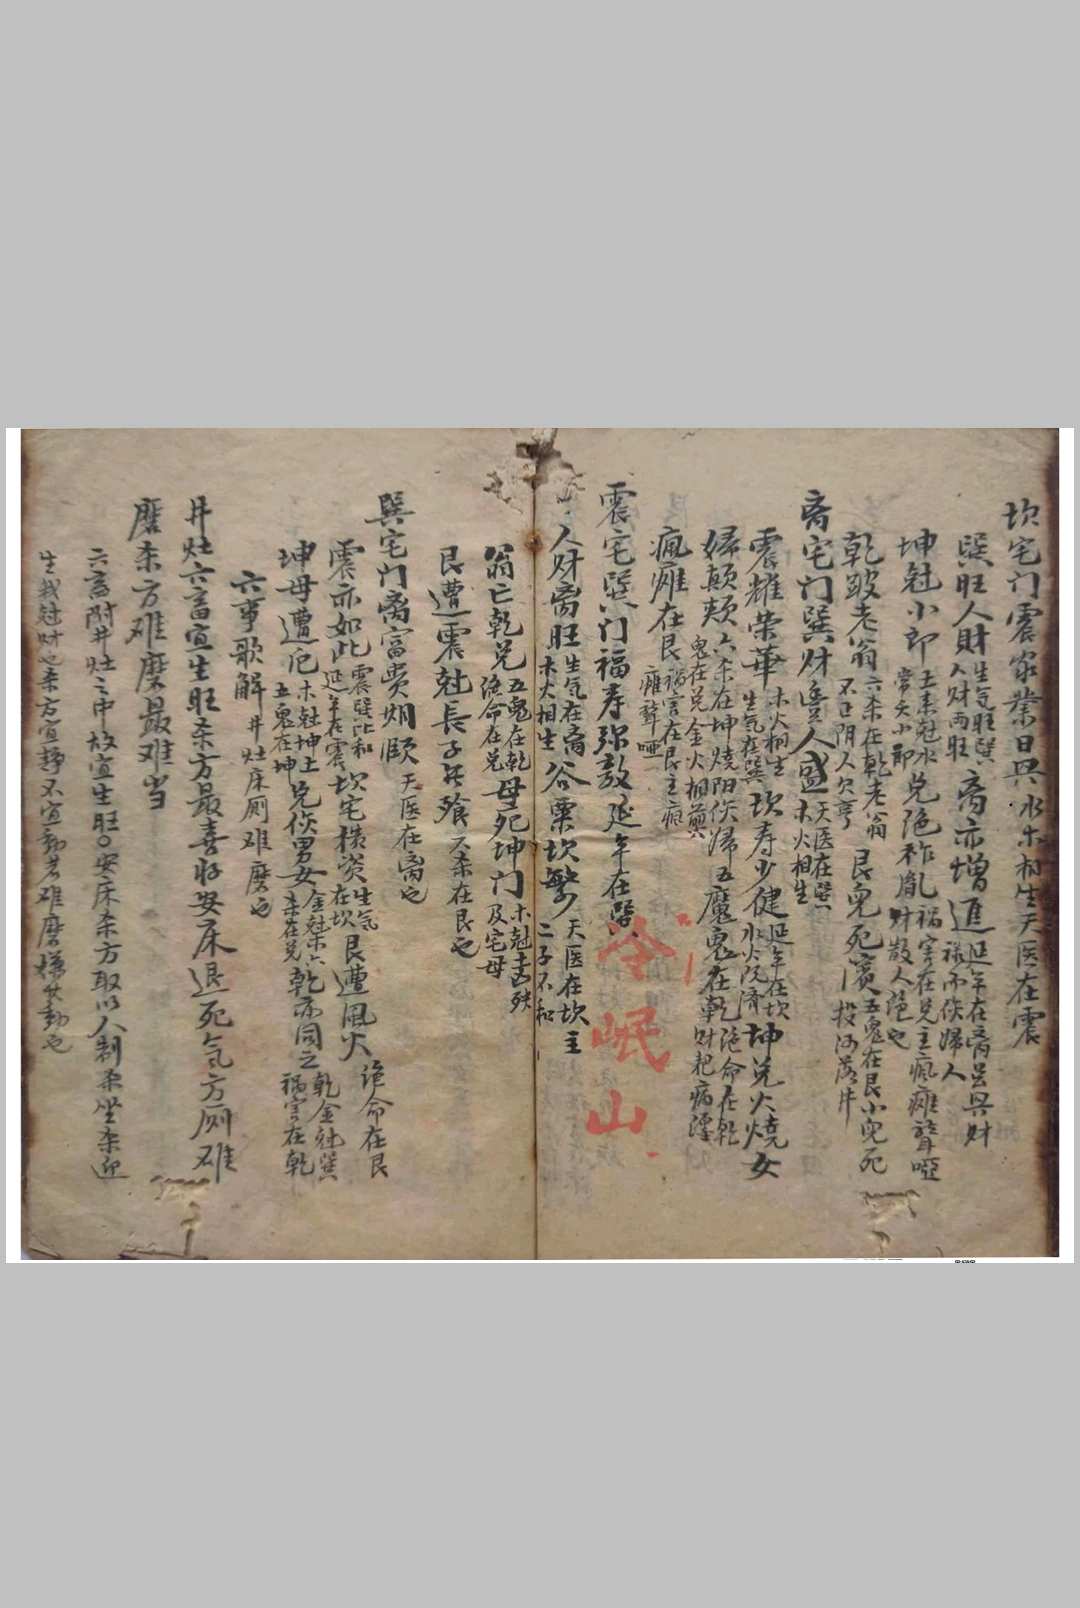 坎宅门震家業日興水木相生天医在震
巽旺人財生气旺巽人财两旺离亦增進延年在离
坤尅小郎土来尅水常夭小郎兑绝祚胤祸害在兑主疯瘫聋哑财散人绝也
乾跛老翁六杀在乾老翁不口阴人欠亨艮兒死濱五鬼在艮小兒死投河落井
离宅门巽财豊人盛天医在巽木火相生
震耀荣華木火相生生气在震坎寿少健延年在坎水火既济坤兑火燒女
婦顛頰六杀在坤燒阳伤婦五鬼在兑金火相煎魔鬼在乾绝命在乾
疯瘫在艮祸害在艮主疯瘫聋哑
震宅巽门福寿弥敦延年在巽
人财离旺生气在离木火相生谷粟坎繁天医在坎主二子不和
翁亡乾兑五鬼在乾绝命在兑母死坤门木尅土及宅母
艮遭震尅長子六杀在艮也
巽宅门离富贵期颐天医在离也
震亦如此震巽比和延年在震坎宅横资生气在坎艮遭風火绝命在艮
坤母遭厄木尅坤土五鬼在坤兑伤男女金尅木六杀在兑乾亦同之乾金尅巽祸害在乾
六事歌解井灶床厕碓磨也
井灶六畜宜生旺杀方最喜好安床退死气方厕碓
磨杀方碓磨最难当
六畜附井灶之中故宜生旺〇安床杀方取以人制杀坐杀迎
生我尅财也杀方宜静不宜動者碓磨
全岷山